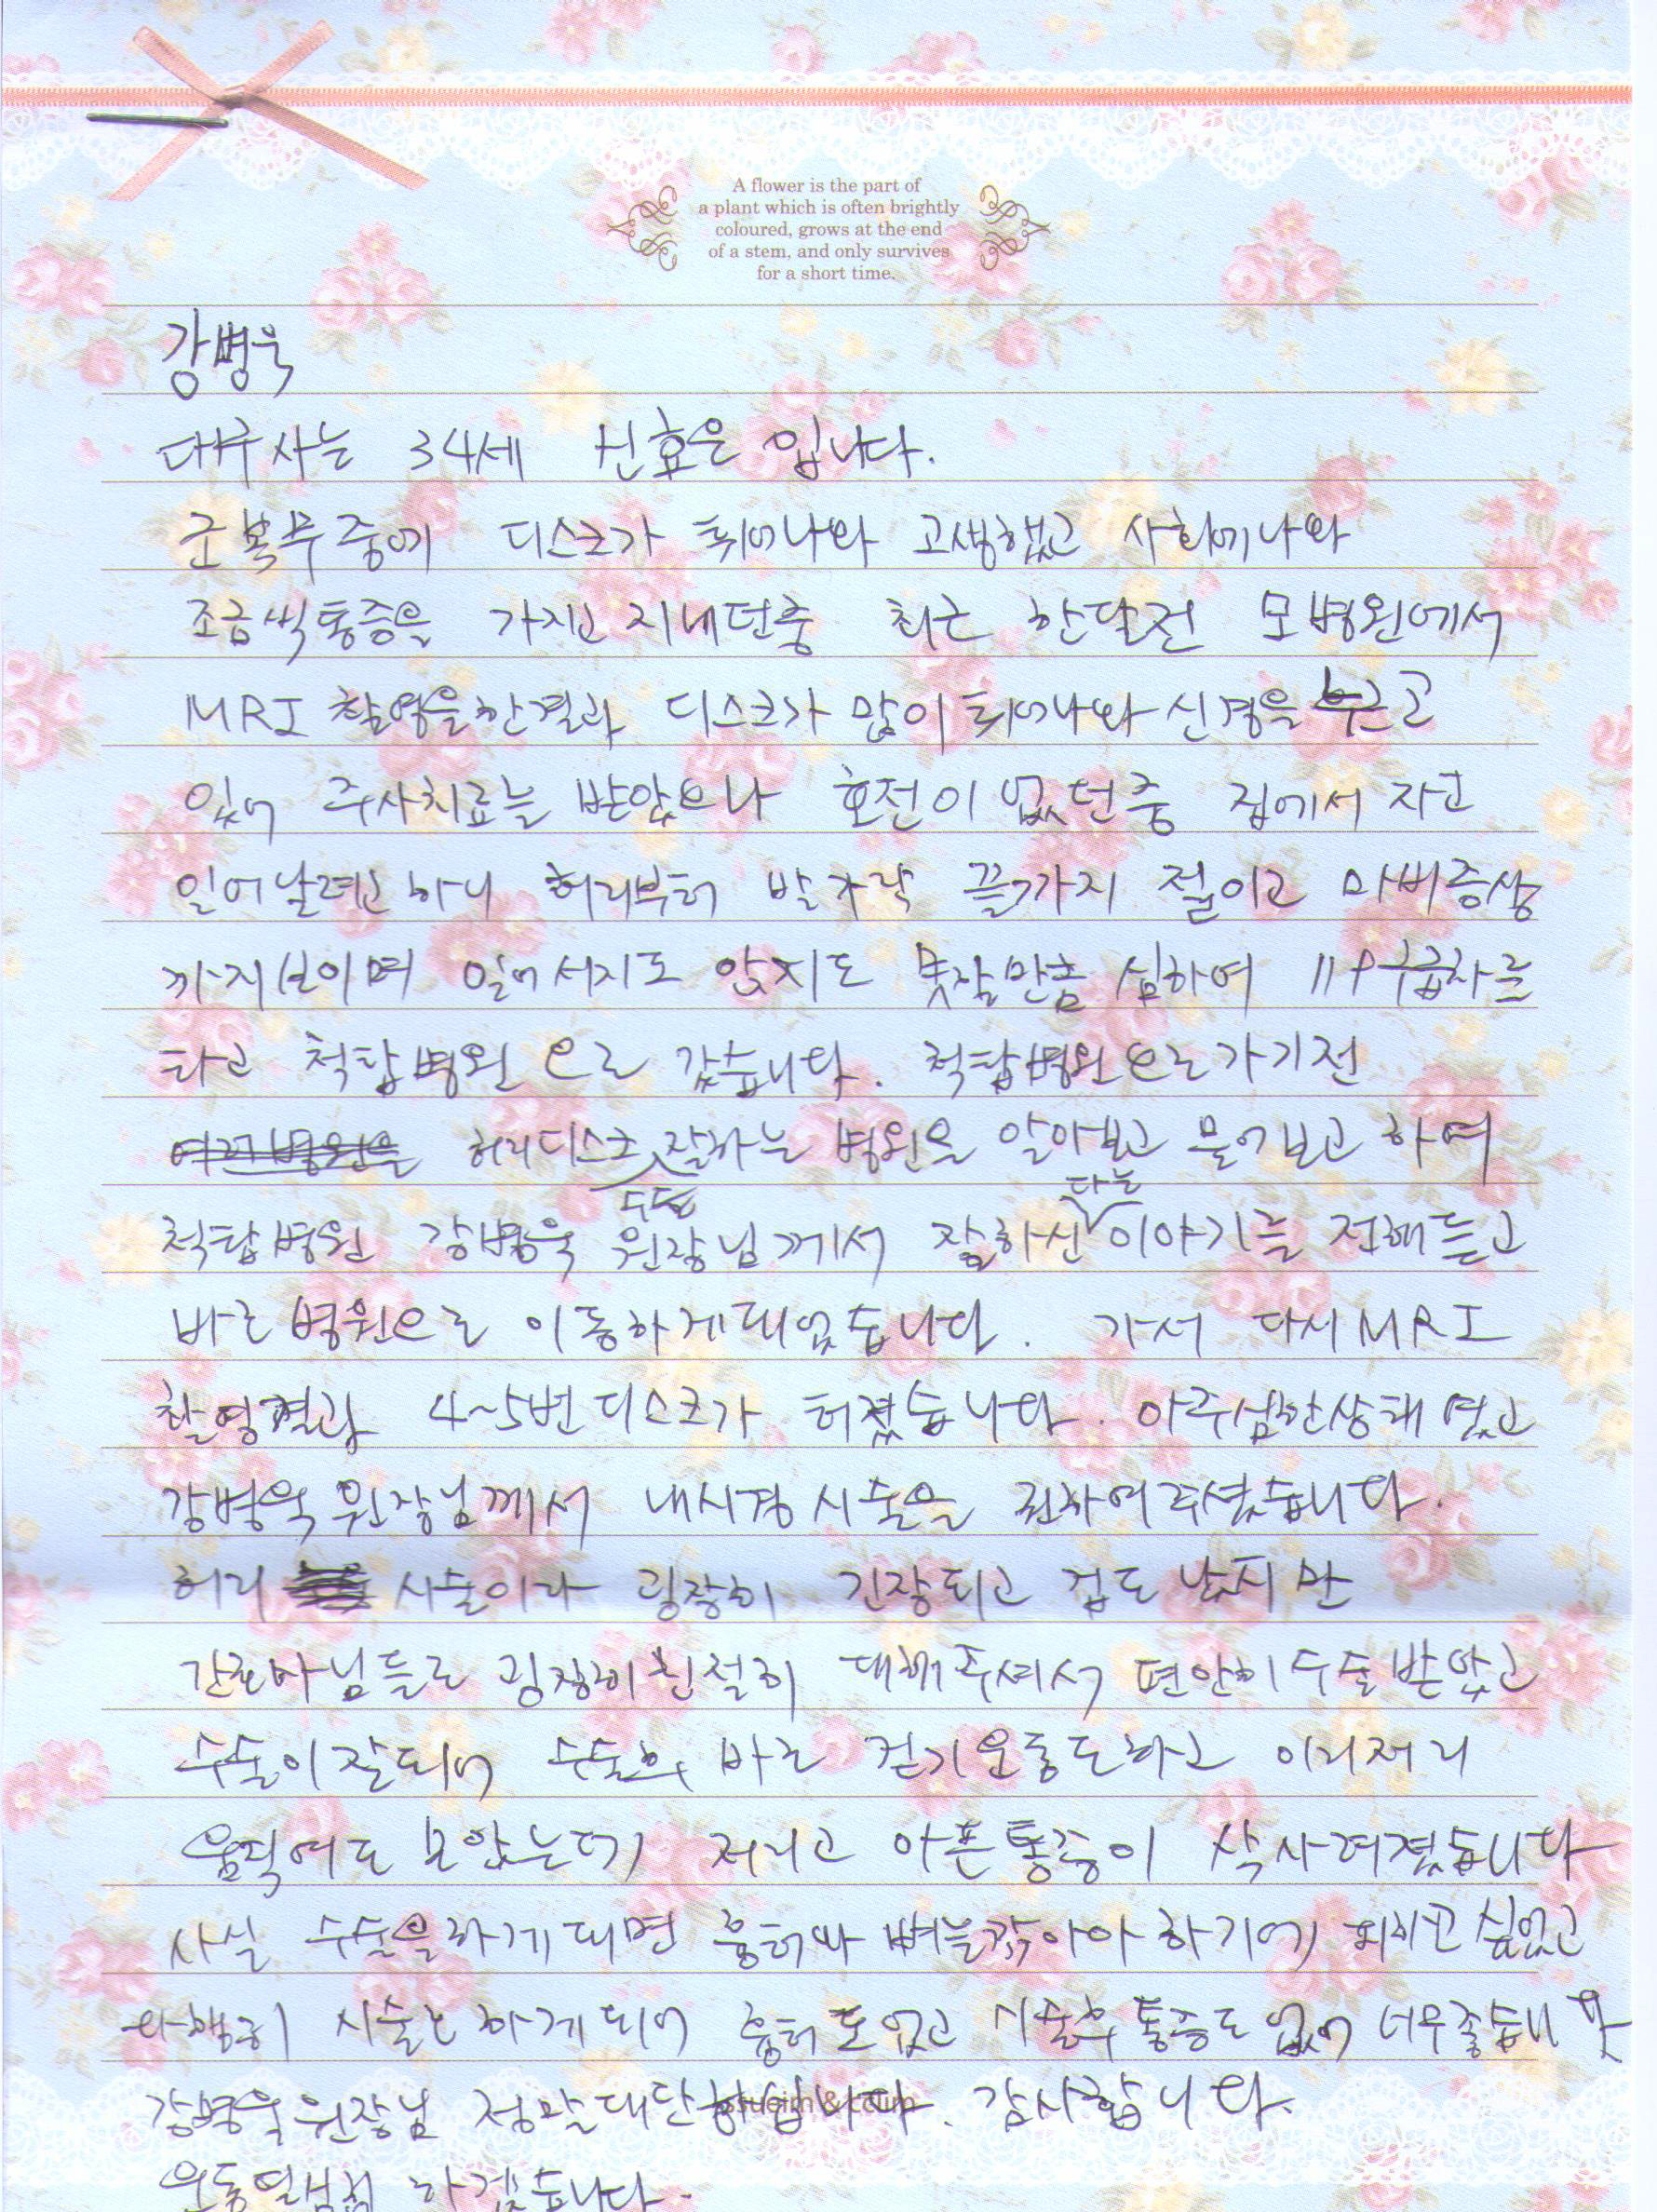 A flower is the part of
a plant which is often brightly
coloured, grows at the end
of a stem, and only survives
for a short time.
강병욱
대구사는 34세 신효은 입니다.
군복무중에 디스크가 튀어나와 고생했고 사회에나와
조금씩통증을 가지고 지내던중 최근 한달전 모병원에서
MRI 촬영을한결과 디스크가 많이 튀어나와 신경을 누르고
있어 주사치료를 받았으나 호전이 없던중 집에서 자고
일어날려고 하니 허리부터 발가락 끝가지 절이고 마비증상
까지보이며 일어서지도 앉지도 못할만큼 심하여 119구급차를
타고 척탑병원 으로 갔습니다. 척탑병원으로가기전
여러병원을 허리디스크 잘하는 병원을 알아보고 물어보고 하여
수술
다는
척탑병원 강병욱 원장님께서 잘하신 이야기를 전해듣고
바로 병원으로 이동하게돼었습니다. 가서 다시MRI
촬영결과 4~5번디스크가 터졌습니다. 아주심한상태였고
강병욱 원장님께서 내시경 시술을 권하여주셨습니다.
허리 시술이라 굉장히 긴장되고 겁도 났지만
간호사님들도 굉장히친절히 대해주셔서 편안히수술받았고
수술이잘되어 수술후 바로 걷기운동도하고 이리저리
움직여도 보았는데 저리고 아픈통증이 싹사려졌습니다
사실 수술을하게돼면 흉터와 뼈를깎아야 하기에 피하고싶었고
다행히 시술로 하게되어 흉터도없고 시술후통증도 없어 너무좋습니다
강병욱원장님 정말대단하십니다. 감사합니다.
운동열심히 하겠습니다.